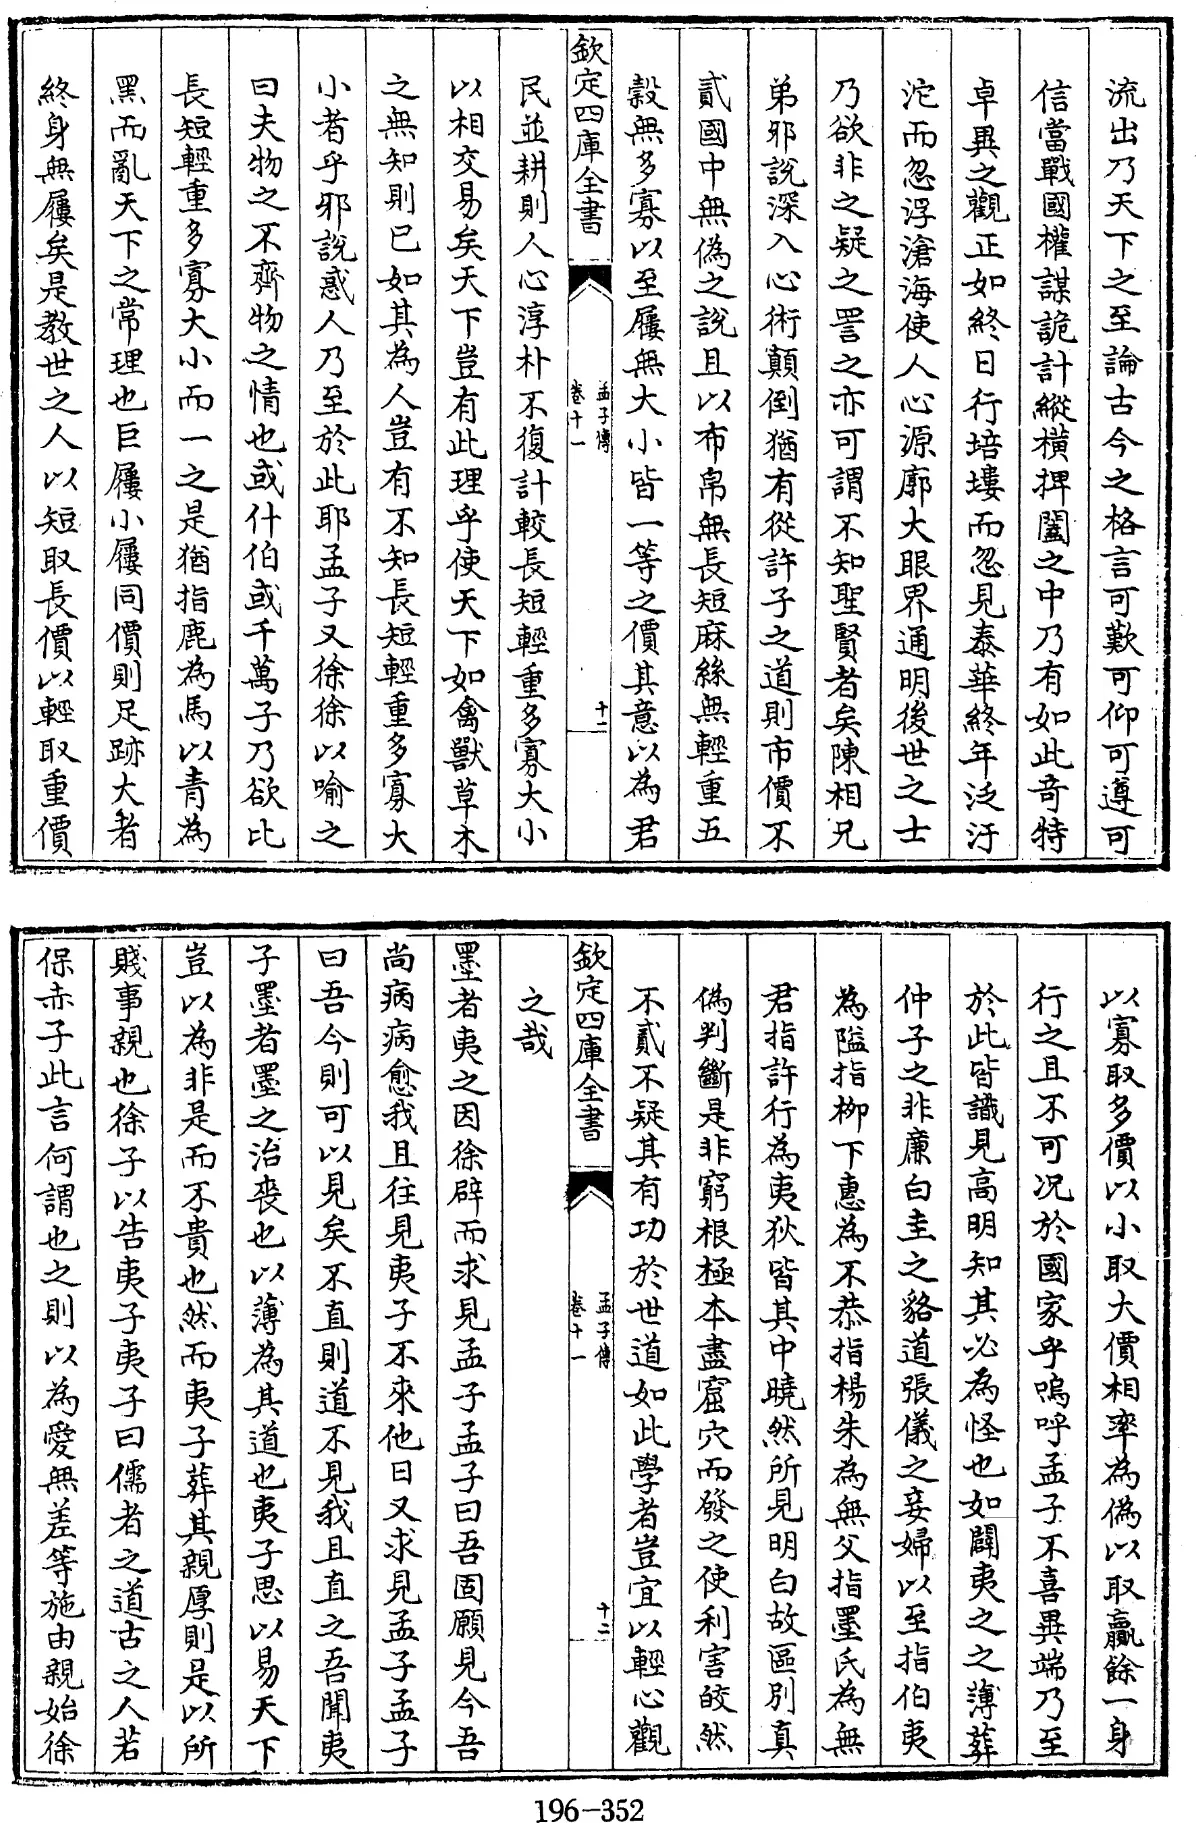 流出乃天下之至論古今之格言可歎可仰可遵可
信當戰國權謀詭計縱橫捭闔之中乃有如此奇特
卓異之觀正如終日行培塿而忽見泰華終年泛汙
沱而忽浮滄海使人心源廓大眼界通明後世之士
乃欲非之疑之詈之亦可謂不知聖賢者矣陳相兄
弟邪說深入心術顛倒猶有從許子之道則市價不
貳國中無偽之說且以布帛無長短麻絲無輕重五
穀無多寡以至屨無大小皆一等之價其意以為君
欽定四庫全書
孟子傳
卷十一
十二
民並耕則人心淳朴不復計較長短輕重多寡大小
以相交易矣天下豈有此理乎使天下如禽獸草木
之無知則已如其為人豈有不知長短輕重多寡大
小者乎邪說惑人乃至於此耶孟子又徐徐以喻之
曰夫物之不齊物之情也或什伯或千萬子乃欲比
長短輕重多寡大小而一之是猶指鹿為馬以青為
黑而亂天下之常理也巨屨小屨同價則足跡大者
終身無屨矣是教世之人以短取長價以輕取重價
以寡取多價以小取大價相率為偽以取贏餘一身
行之且不可况於國家乎嗚呼孟子不喜異端乃至
於此皆識見高明知其必為怪也如闢夷之之薄葬
仲子之非廉白圭之貉道張儀之妾婦以至指伯夷
為隘指柳下惠為不恭指楊朱為無父指墨氏為無
君指許行為夷狄皆其中曉然所見明白故區別真
偽判斷是非窮根極本盡窟穴而發之使利害皎然
不貳不疑其有功於世道如此學者豈宜以輕心觀
之哉
欽定四庫全書
孟子傳
卷十一
十二
墨者夷之因徐辟而求見孟子孟子曰吾固願見今吾
尚病病愈我且往見夷子不來他日又求見孟子孟子
曰吾今則可以見矣不直則道不見我且直之吾聞夷
子墨者墨之治喪也以薄為其道也夷子思以易天下
豈以為非是而不貴也然而夷子葬其親厚則是以所
賤事親也徐子以告夷子夷子曰儒者之道古之人若
保赤子此言何謂也之則以為愛無差等施由親始徐
196-352